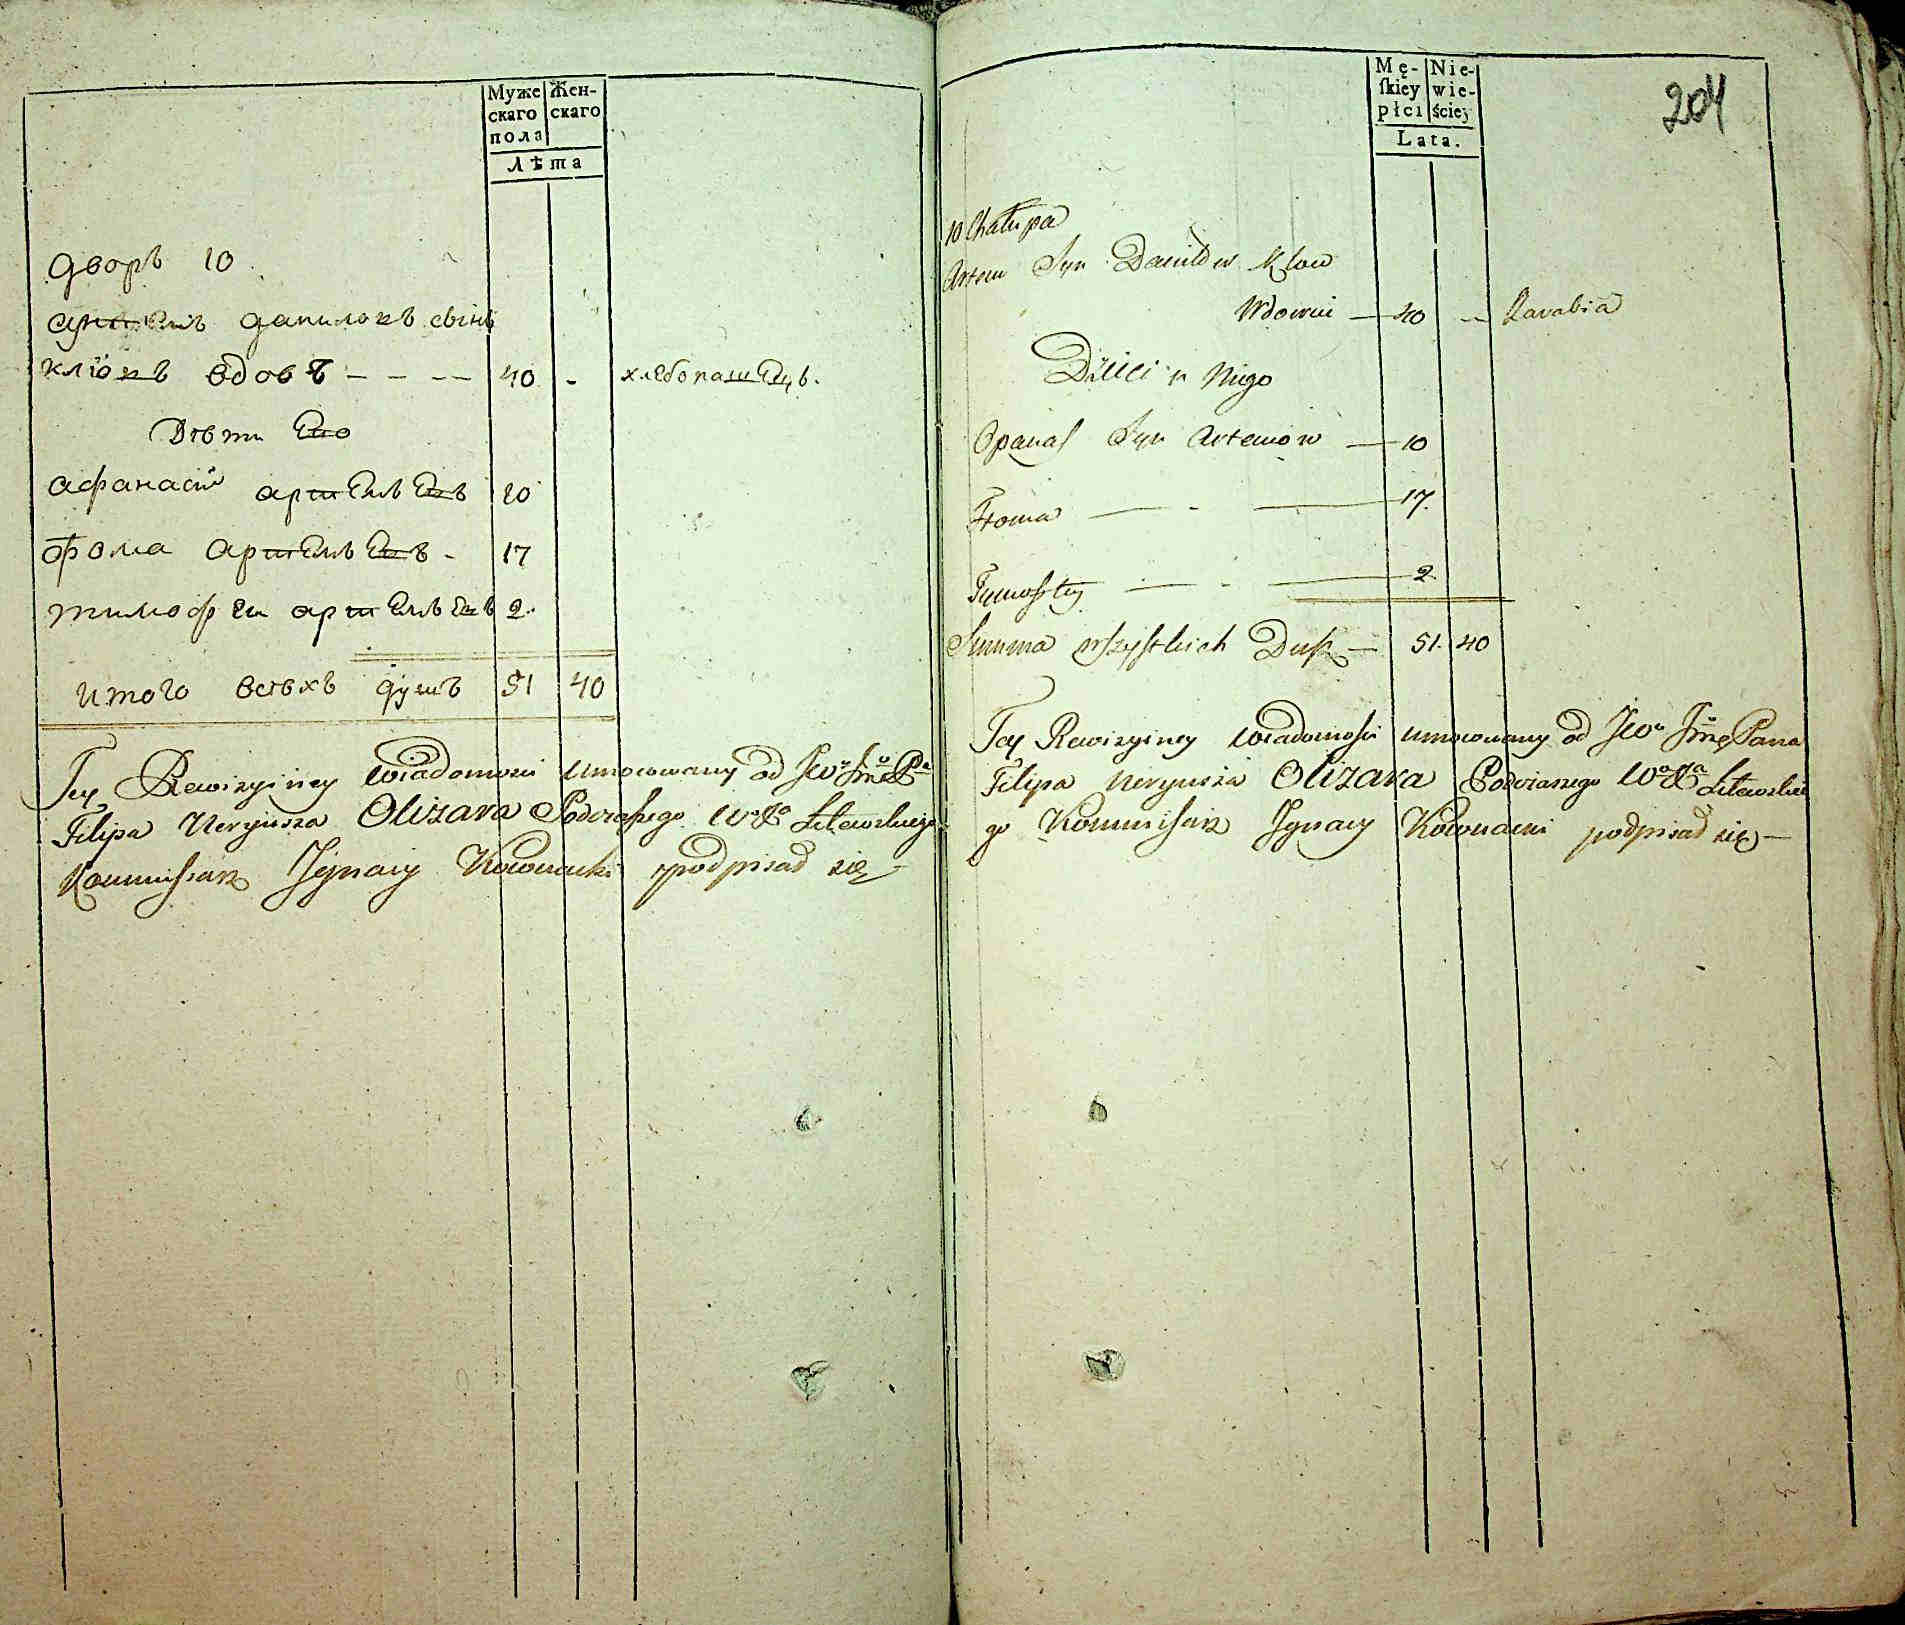 Муже
скаго
пола
Жен-
скаго
Лѣта
дворъ 10
артемъ даниловъ сынъ
клювъ вдовъ - - - - 40 - хлебопашецъ.
Дѣти его
афанасий артемьевъ 10
фома артемьевъ - 17
тимофеи артемьевъ 2.
итого всѣхъ душъ 51 40
Tey Rewizyiney Wiadomosci Umocowany od JWo Jmę Pa
Filipa Neryusza Olizara Podczaszego Wo Xa Litewskiego
Kommissarz Jgnacy podpisał się
204
Mę-
ſkiey
płci
Nie-
wie-
ściey
Lata.
10 Chałupa
Artem Syn Daniłow Klow
Wdowiec — 40 -- Zarabia
Dzieci u Niego
Opanas Syn Artemow — 10
Froma — - — 17.
Tymofiey — - — 2.
Summa wszystkich Dusz — 51. 40
Tey Rewizyiney Wiadomosci umocowany od JWo Jmę Pana
Filipa Neryusza Olizara Podczaszego Wo Xa Litewskie
go Kommissarz Jgnacy podpisał się —